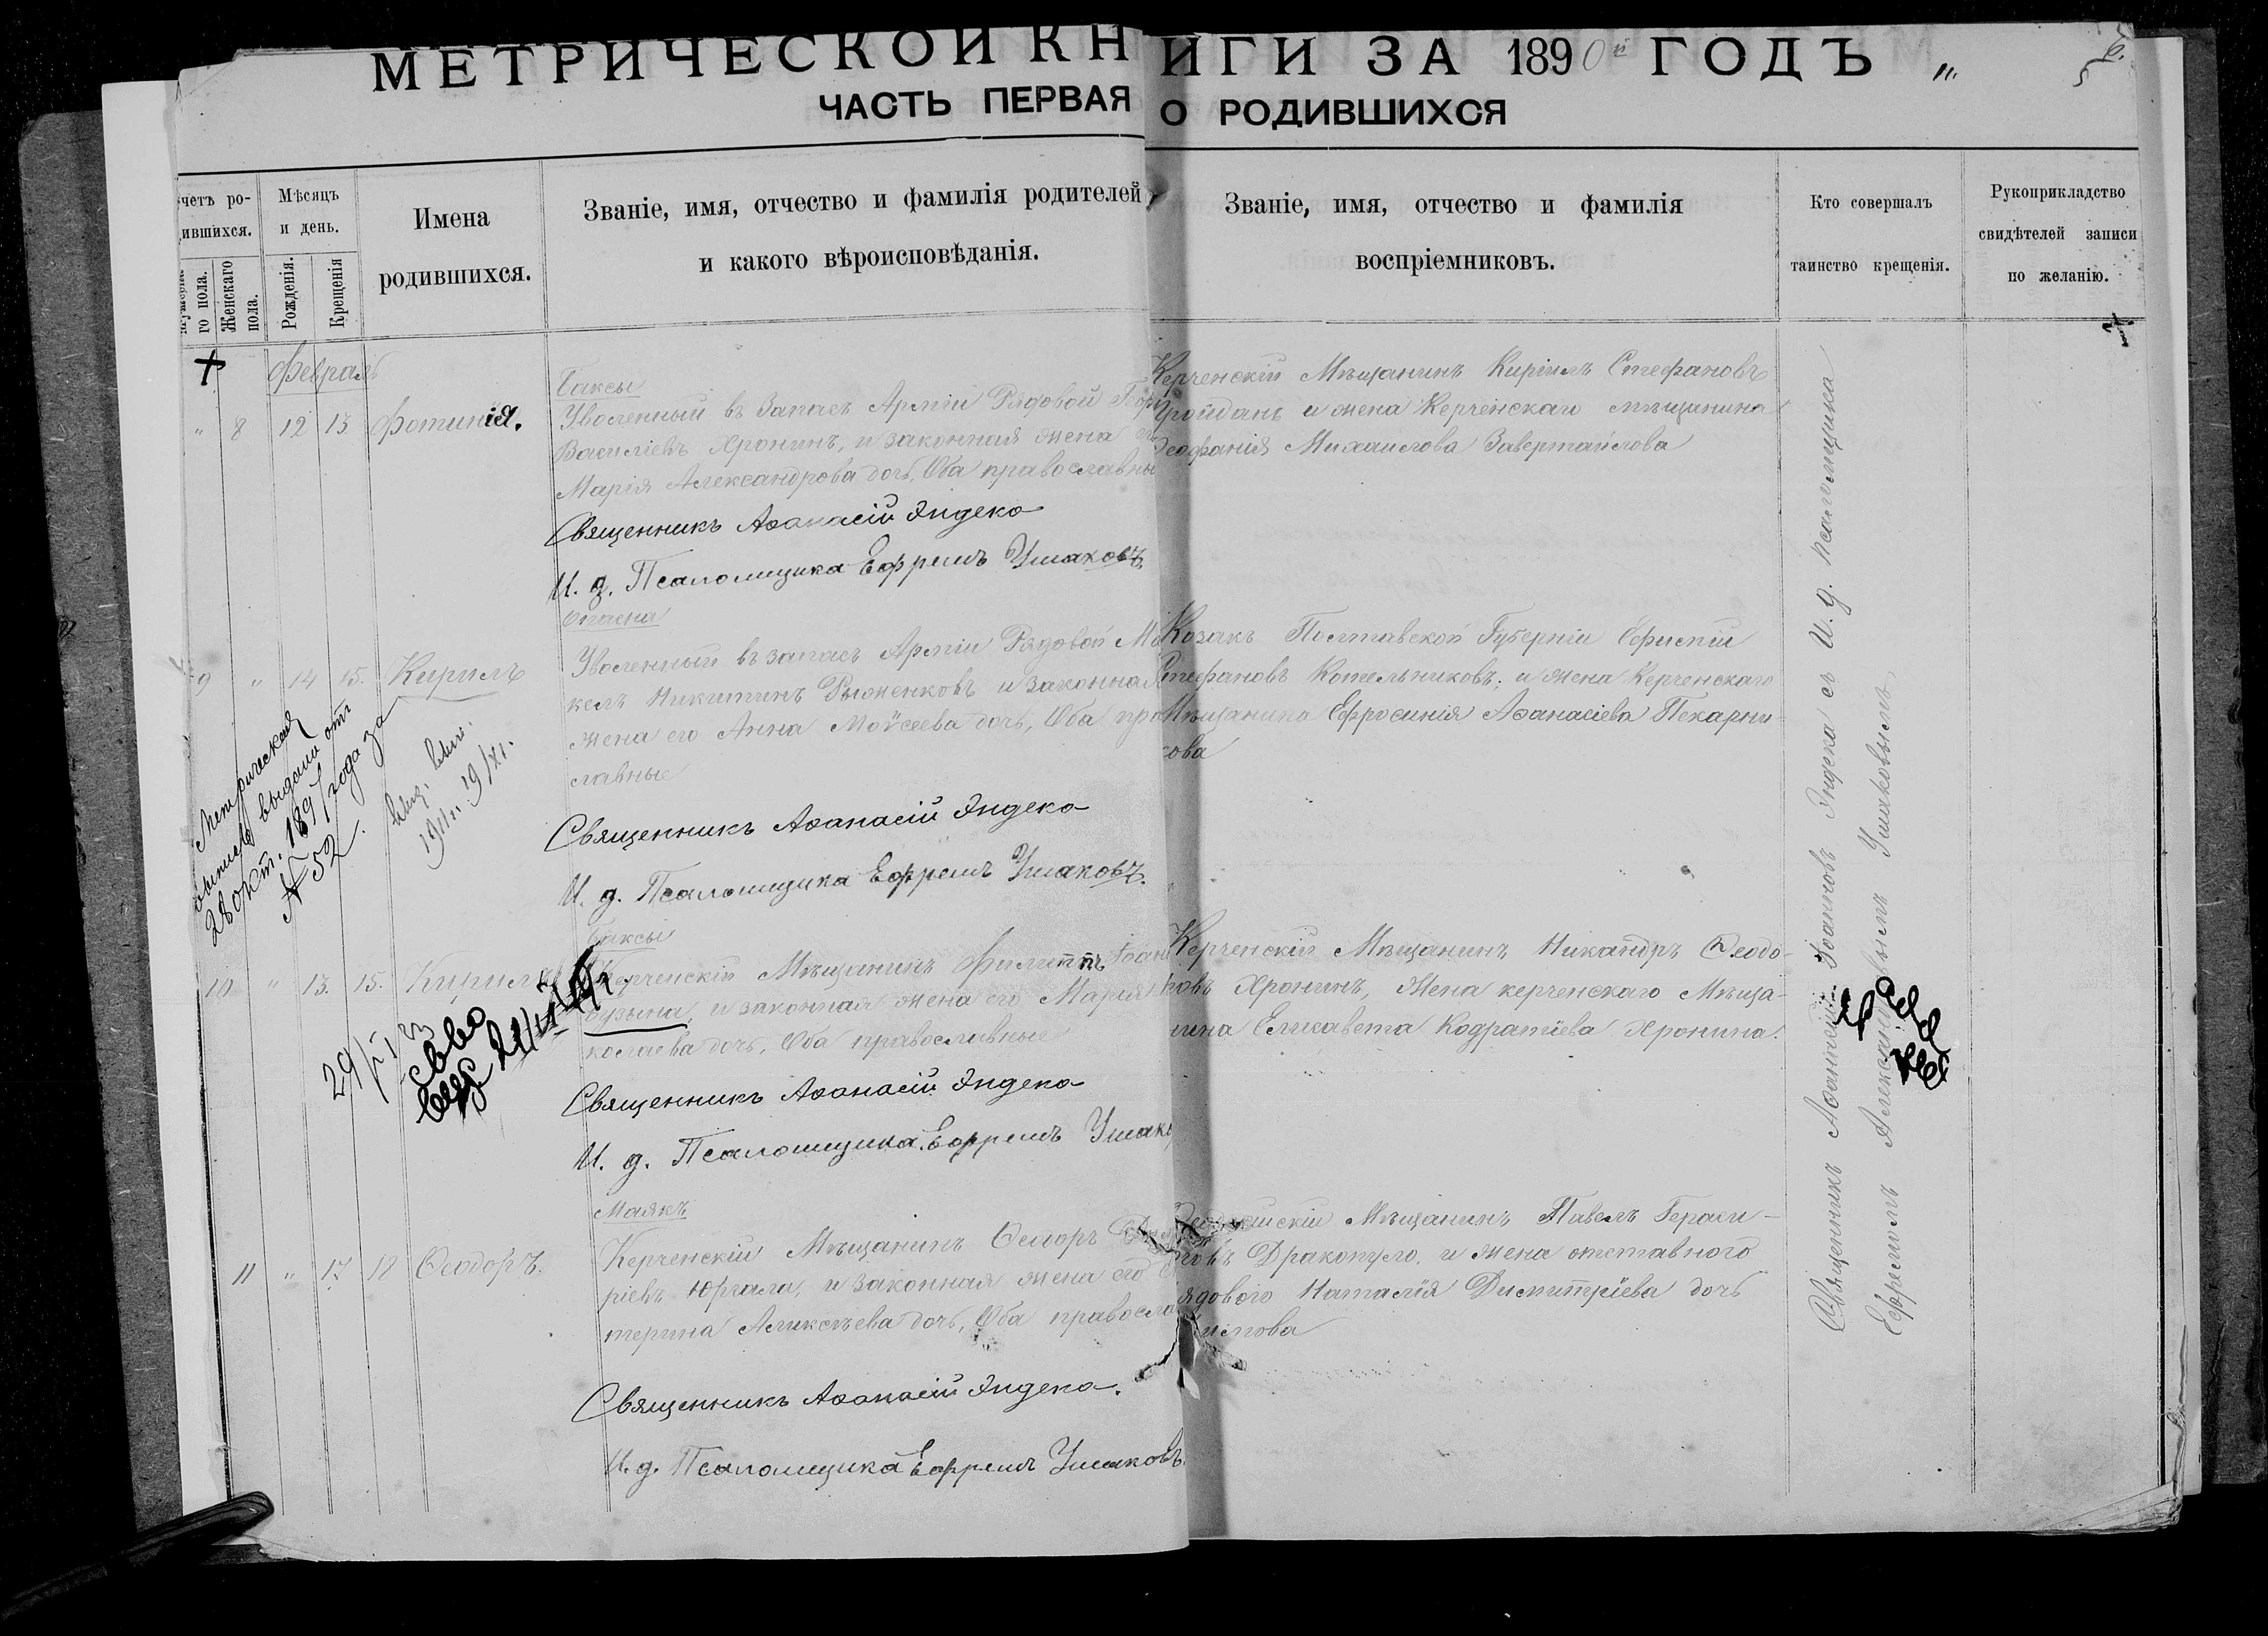 МЕТРИЧЕСКОЙ КНИГИ ЗА 1890й ГОДЪ „
ЧАСТЬ ПЕРВАЯ О РОДИВШИХСЯ
четъ ро-
дившихся.
го пола.
Женскаго пола.
Мѣсяцъ
и день.
Рожденія.
Крещенія
Имена
родившихся.
Званіе, имя, отчество и фамилія родителей,
и какого вѣроисповѣданія.
Званіе, имя, отчество и фамилія
воспріемниковъ.
Кто совершалъ
таинство крещенія.
Рукоприкладство
свидѣтелей записи
по желанію.
Февраль
„ 8 12 13 Фотинія.
Баксы
Уволенный въ Запасъ Арміи Рядовой
Василіевъ Хронинъ, и законная жена
Марія Александрова дочь, Оба православны
Священникъ Аѳанасій Эндека
И. д. Псаломщика Ефремъ Ушаковъ.
Керченскій Мѣщанинъ Кириллъ Стефановъ
и жена Керченскаго мѣщанина
Ѳеофанія Михаилова Завертайлова
9 „ 14 15. Кириллъ
Опасна
Уволенный въ запасъ Арміи Рядовой
Никитинъ Рыженковъ и законная
жена его Анна Моѵсеева дочь, Оба право
славные
Священникъ Аѳанасій Эндека
И. д. Псаломщика Ефремъ Ушаковъ.
Козакъ Полтавской Губерніи
Стефановъ Котельниковъ; и жена Керченскаго
Мѣщанина Ефросинія Аѳанасіева Пекарни
кова
Метрическая
выпись выдана отъ
28 окт. 1897 года за
№ 52.
1911 г. 19/XI.
10 „ 13. 15. Кириллъ
Баксы
Керченскій Мѣщанинъ Филиппъ
и законная жена его Марія
колаева дочь, Оба православные
Священникъ Аѳанасій Эндека
И. д. Псаломщика Ефремъ Ушак
Керченскій Мѣщанинъ Никандръ Ѳеодо-
ровъ Хронинъ, Жена керченскаго Мѣща-
нина Елисавета Кодратіева Хронина.
11 „ 17 18 Ѳеодоръ.
Маякъ
Керченскій Мѣщанинъ Ѳеодоръ
ріевъ Юргала, и законная жена его
терина Алексѣева дочь, Оба правосла
Священникъ Аѳанасій Эндека.
И. д. Псаломщика Ефремъ Ушаковъ
Мѣщанинъ Павелъ Гераси-
мовъ Дракопуло, и жена отставного
рядового Наталія Димитріева дочь
Священникъ Аѳанасій Іоанновъ Эндека съ И. д. псаломщика
Ефремомъ Александровымъ Ушаковымъ